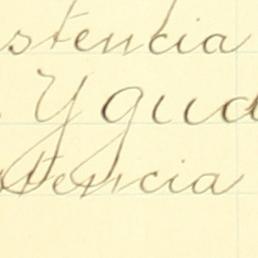 stencia
Ygud
stencia